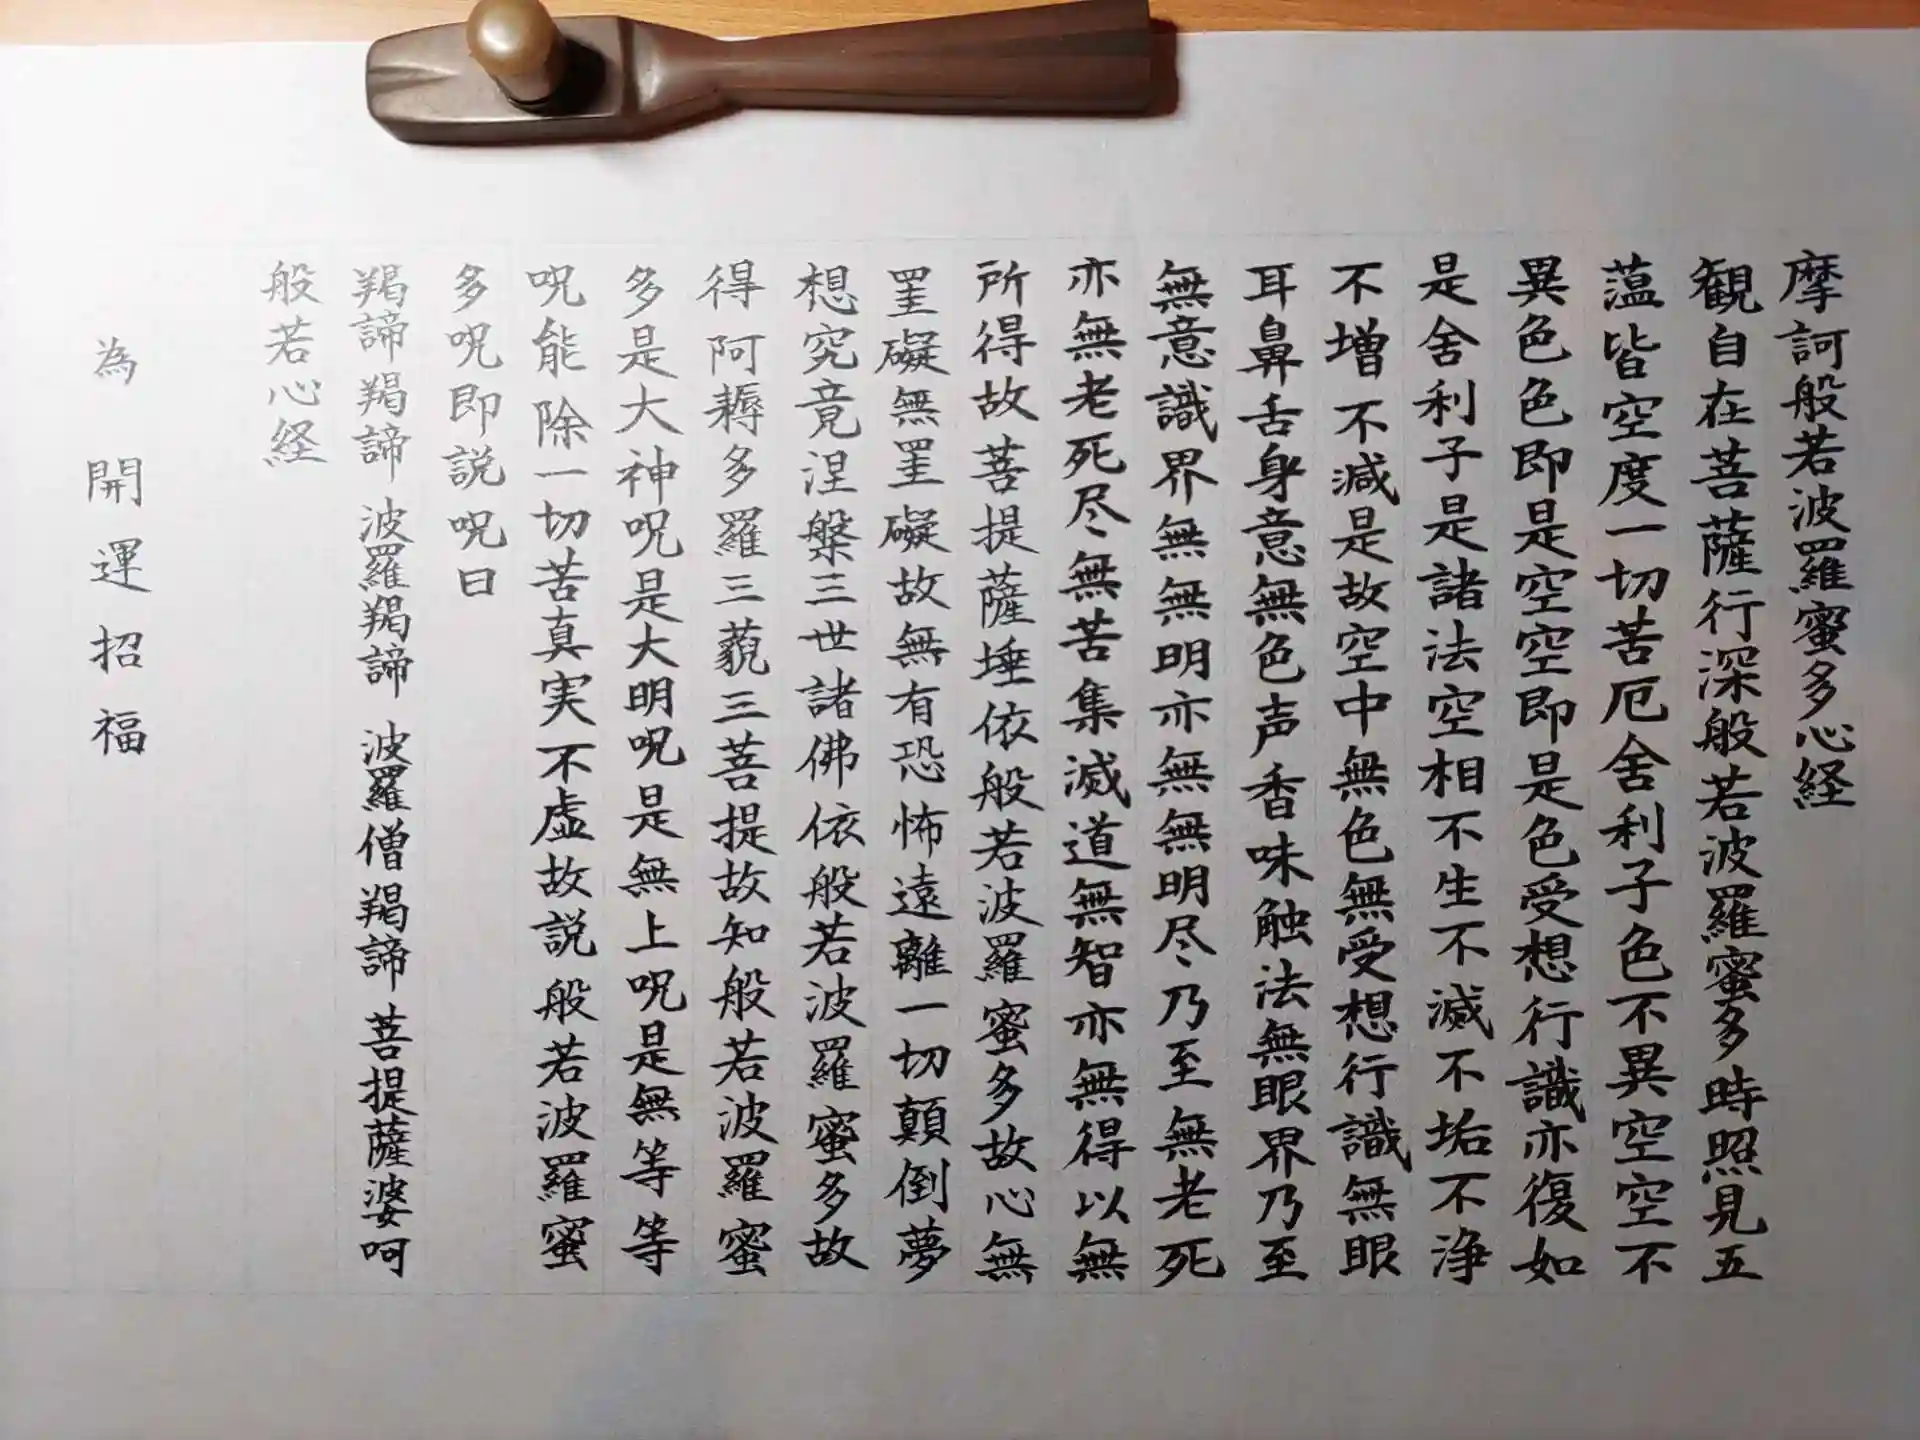 摩訶般若波羅蜜多心経
観自在菩薩行深般若波羅蜜多時照見五
薀皆空度一切苦厄舎利子色不異空空不
異色色即是空空即是色受想行識亦復如
是舎利子是諸法空相不生不滅不垢不浄
不増不減是故空中無色無受想行識無眼
耳鼻舌身意無色声香味触法無眼界乃至
無意識界無無明亦無無明尽乃至無老死
亦無老死尽無苦集滅道無智亦無得以無
所得故菩提薩埵依般若波羅蜜多故心無
罣礙無罣礙故無有恐怖遠離一切顛倒夢
想究竟涅槃三世諸佛依般若波羅蜜多故
得阿耨多羅三藐三菩提故知般若波羅蜜
多是大神呪是大明呪是無上呪是無等等
呪能除一切苦真実不虚故説般若波羅蜜
多呪即説呪曰
羯諦羯諦 波羅羯諦 波羅僧羯諦 菩提薩婆呵
般若心経
為 開運招福